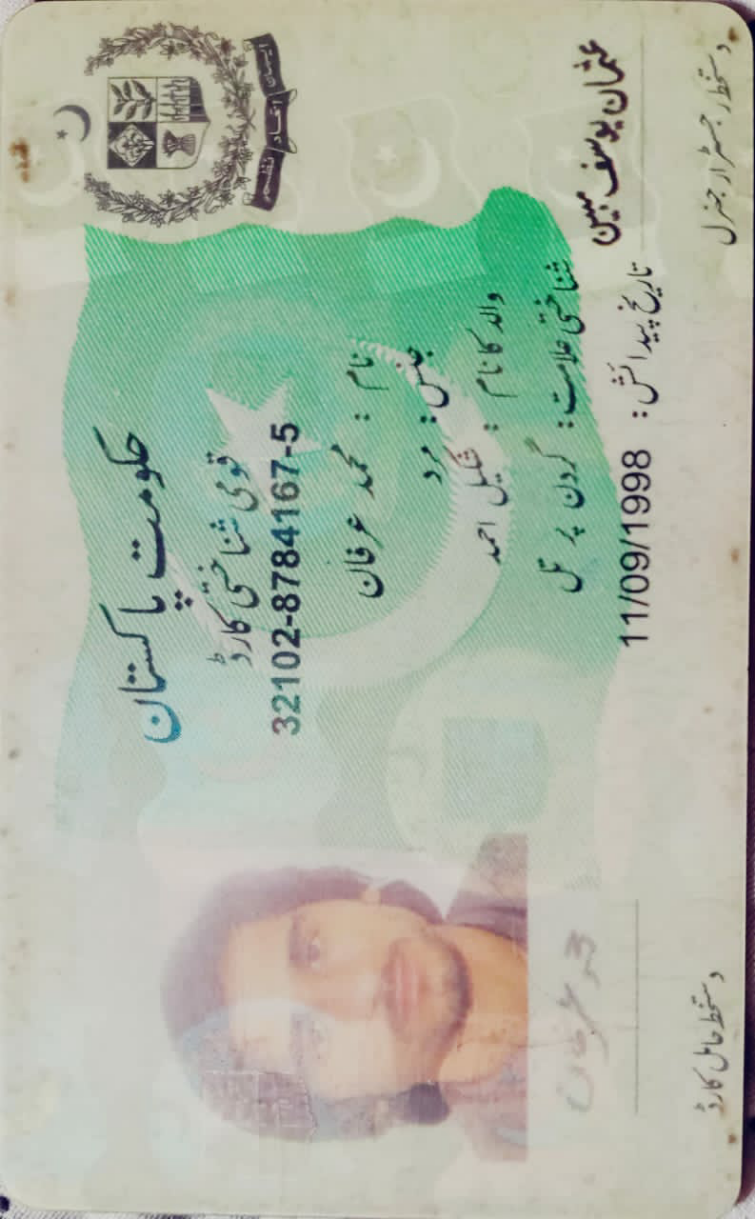 ایمان اتحاد نظم
حکومت پاکستان
قومی شناختی کارڈ
32102-8784167-5
نام : محمد عرفان
جنس: مرد
والد کا نام : شکیل احمد
شناختی علامت: گردن پر تل
تاریخ پیدائش: 11/09/1998
عثمان یوسف مبین
دستخط رجسٹرار جنرل
محمد عرفان
دستخط حامل کارڈ